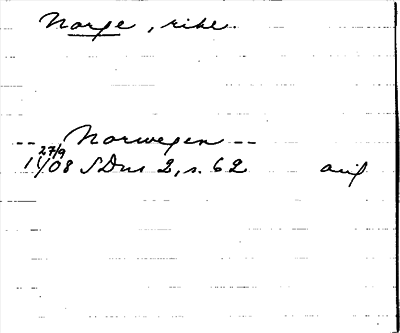 Norge, rike.
-- Norwegen --
27/9
1408 SDns 2, s. 62 avif